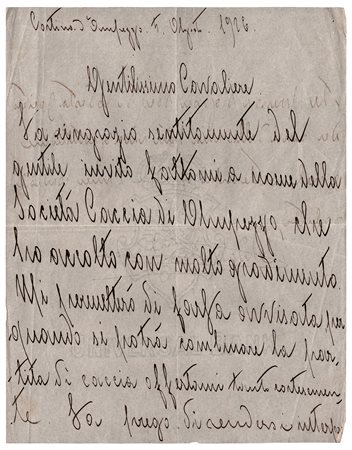 Cortina d'Ampezzo 7. Agosto. 1926.
Gentilissimo Cavaliere
La ringrazio sentitamente del
gentile invito fattomi a nome della
Società Caccia di Ampezzo che
ho accolto con molto gradimento.
Mi permetterà di farla avvisata per
quando si potrà combinare la par-
tita di caccia offertami tanto cortesemen-
te La prego di rendersi